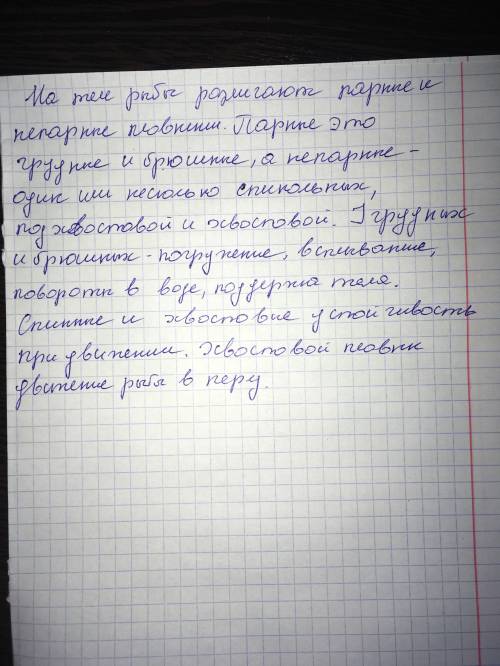 На теле рыбы различают парные и
непарные плавники. Парные это
грудные и брюшные, а непарные -
один или несколько спинольных,
подхвостовой и хвостовой. У грудных
и брюшных - погружение, всплывание,
повороты в воде, поддержка тела.
Спинные и хвостовые устойчивость
при движении. Хвостовой плавник
движение рыбы в перу.